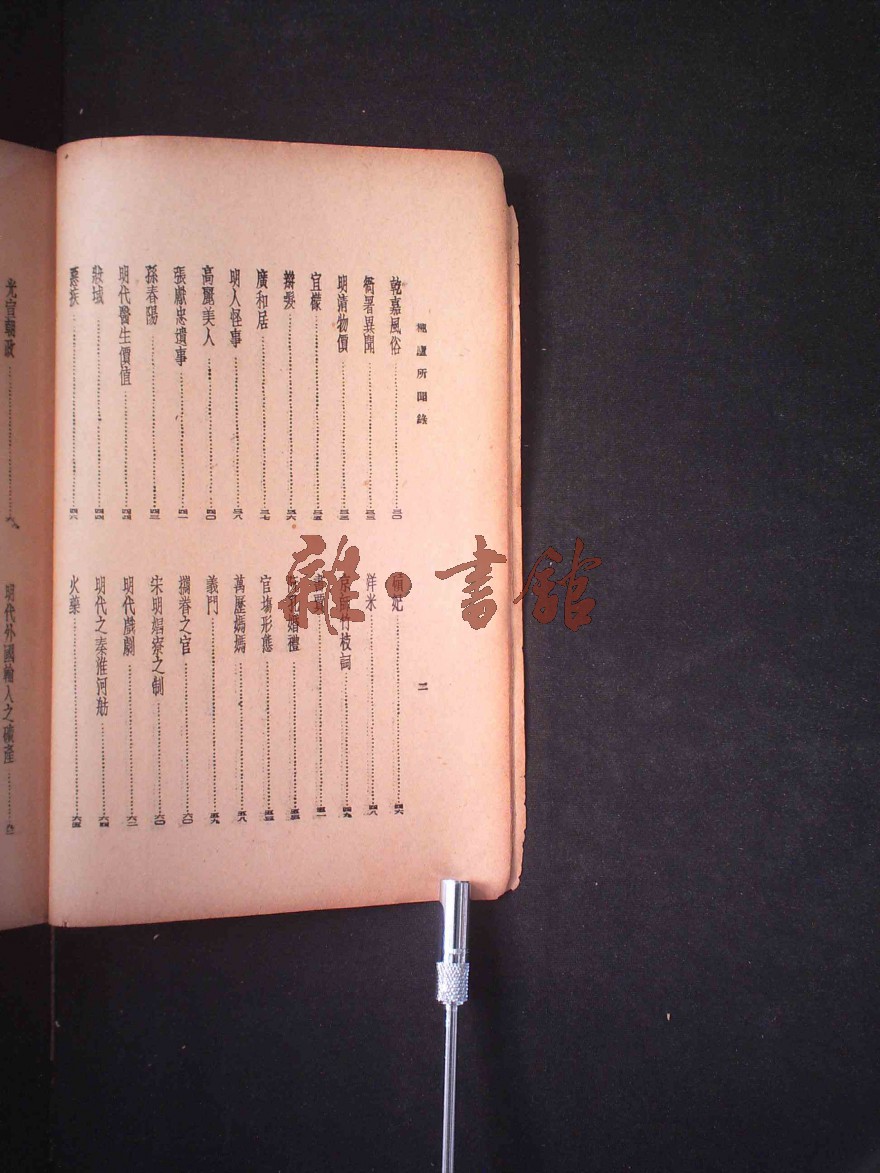 所聞錄
二
乾嘉風俗……三〇
衙署異聞……三三
明清物價……三三
宜檬……三五
辮髮……三六
廣和居……三七
明人怪事……三八
高麗美人……四〇
張獻忠遺事……四一
孫春陽……四三
明代醫生價值……四四
妝域……四四
票族……四六
妃……四六
洋米……四八
京師竹枝詞……四九
五一
婚禮……五三
官場形態……五三
萬歷媽媽……五八
義門……五九
攜眷之官……六〇
宋明娼寮之制……六〇
明代戲劇……六二
明代之秦淮河舫……六四
火藥……六五
光宣朝政
明代外國輸入之礦產
雜·書館